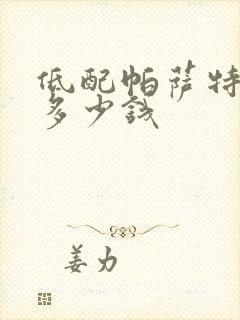 低配帕萨特
多少钱
姜力